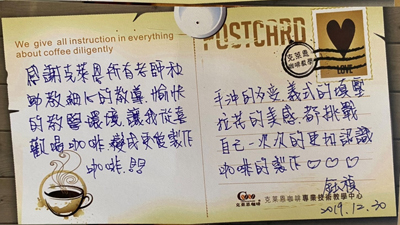 We give all instruction in everything
about coffee diligently
POSTCARD
克萊恩
咖啡教學
LOVE
感謝克萊恩所有老師和
助教細心的教導,愉快
的教學環境,讓我從喜
歡喝咖啡,變成更愛製作
咖啡!!!
手沖的多變,義式的濃壓
拉花的美感,都挑戰
自己一次次的更加認識
咖啡的製作♡♡♡
克萊恩咖啡
克萊恩咖啡專業技術教學中心
2019.12.30